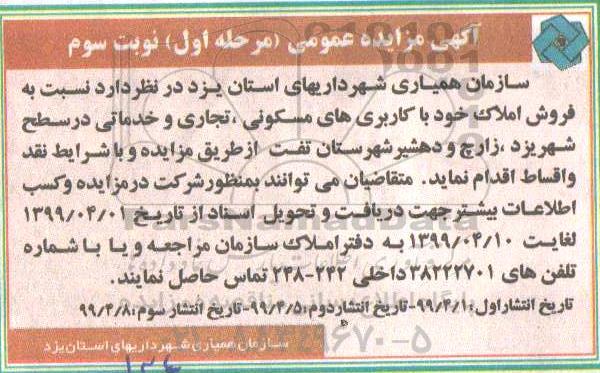 آگهی مزایده عمومی (مرحله اول) نوبت سوم
سازمان همیاری شهرداریهای استان یزد در نظر دارد نسبت به
فروش املاک خود با کاربری های مسکونی ، تجاری و خدماتی در سطح
شهر یزد ، زارچ و دهشیر شهرستان تفت از طریق مزایده و با شرایط نقد
و اقساط اقدام نماید. متقاضیان می توانند بمنظور شرکت در مزایده و کسب
اطلاعات بیشتر جهت دریافت و تحویل اسناد از تاریخ ۱۳۹۹/۰۴/۰۱
لغایت ۱۳۹۹/۰۴/۱۰ به دفتر املاک سازمان مراجعه و یا با شماره
تلفن های ۳۸۲۲۲۷۰۱ داخلی ۲۴۲-۲۴۸ تماس حاصل نمایند.
تاریخ انتشار اول: ۹۹/۴/۱-تاریخ انتشار دوم: ۹۹/۴/۵-تاریخ انتشار سوم: ۹۹/۴/۸
سازمان همیاری شهرداریهای استان یزد
ParsNamadData